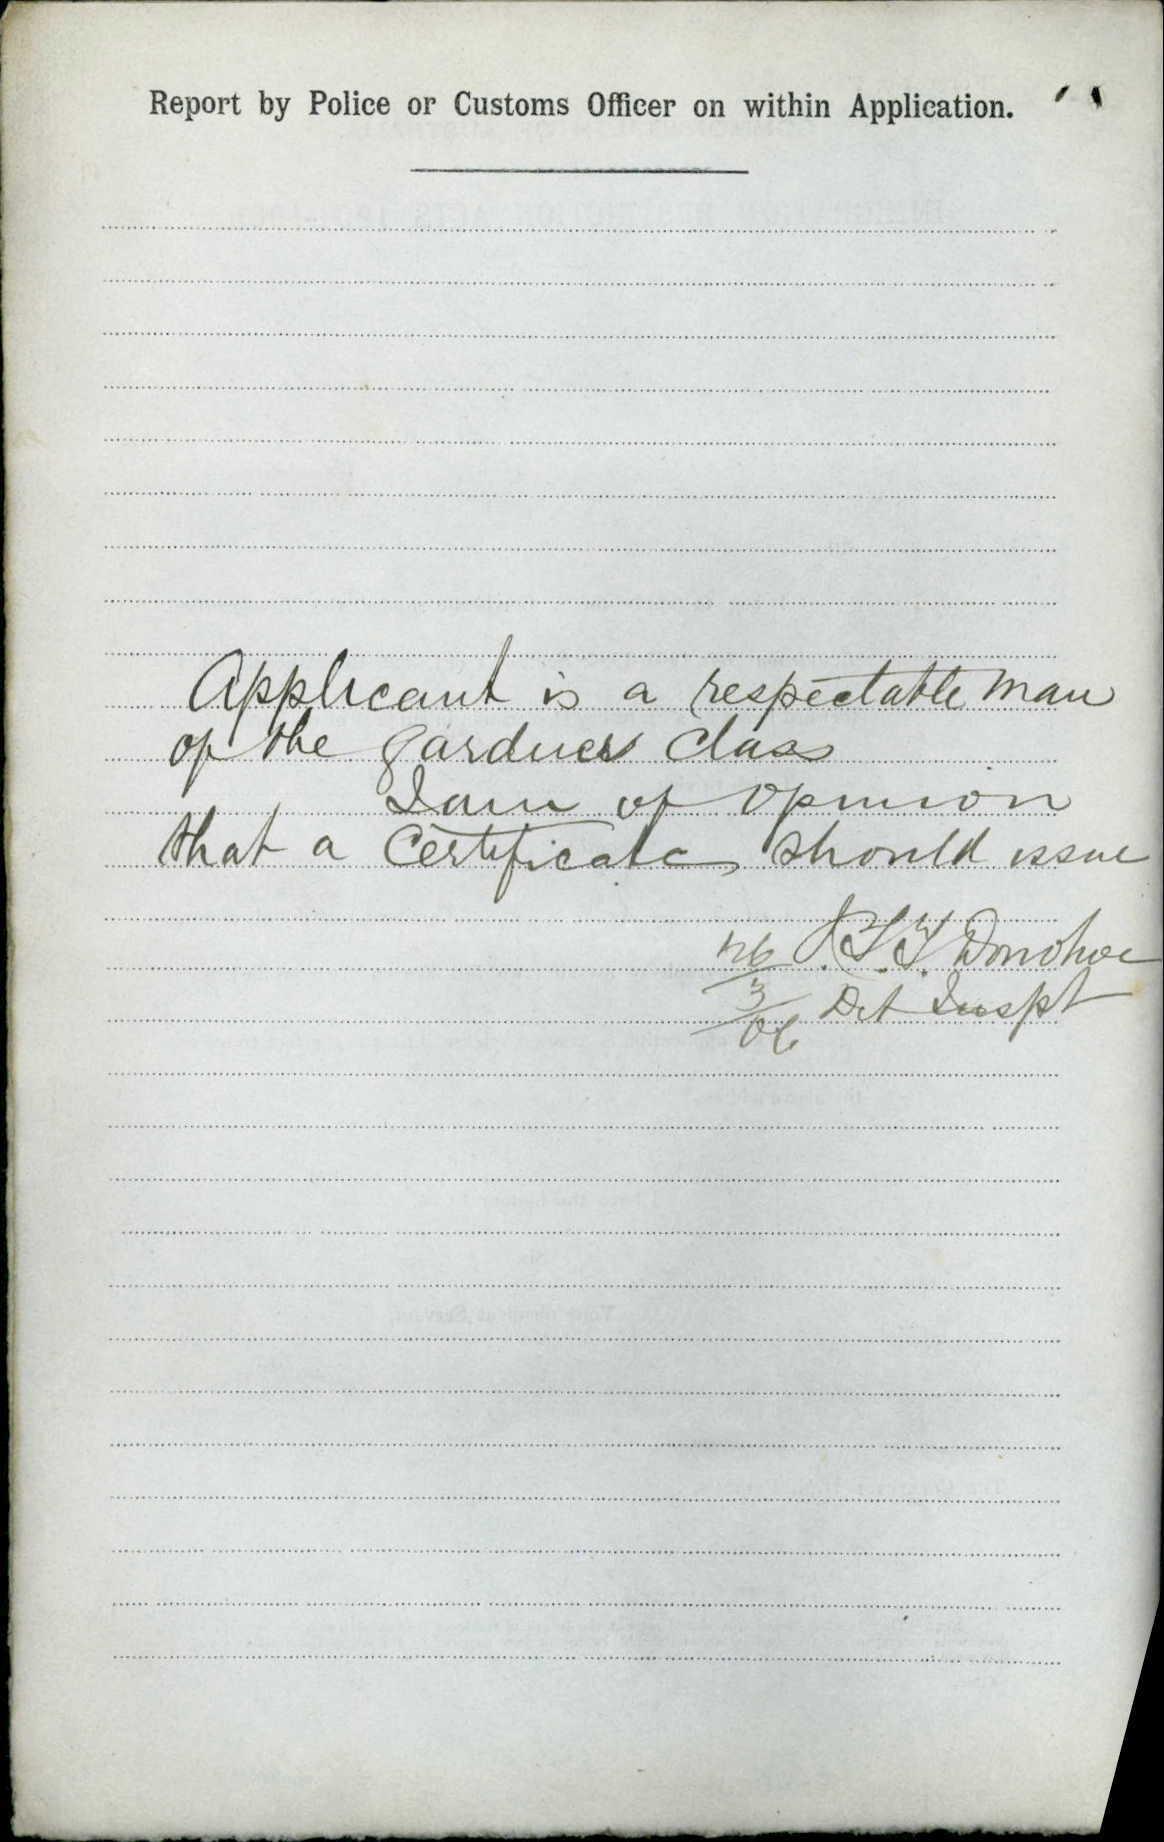 Report by Police or Customs Officer on within Application.
Applicant is a respectable man
of the gardner class
I am of opinion
that a Certificate, should issue
Donohoe
26/3/06 Det Inspt